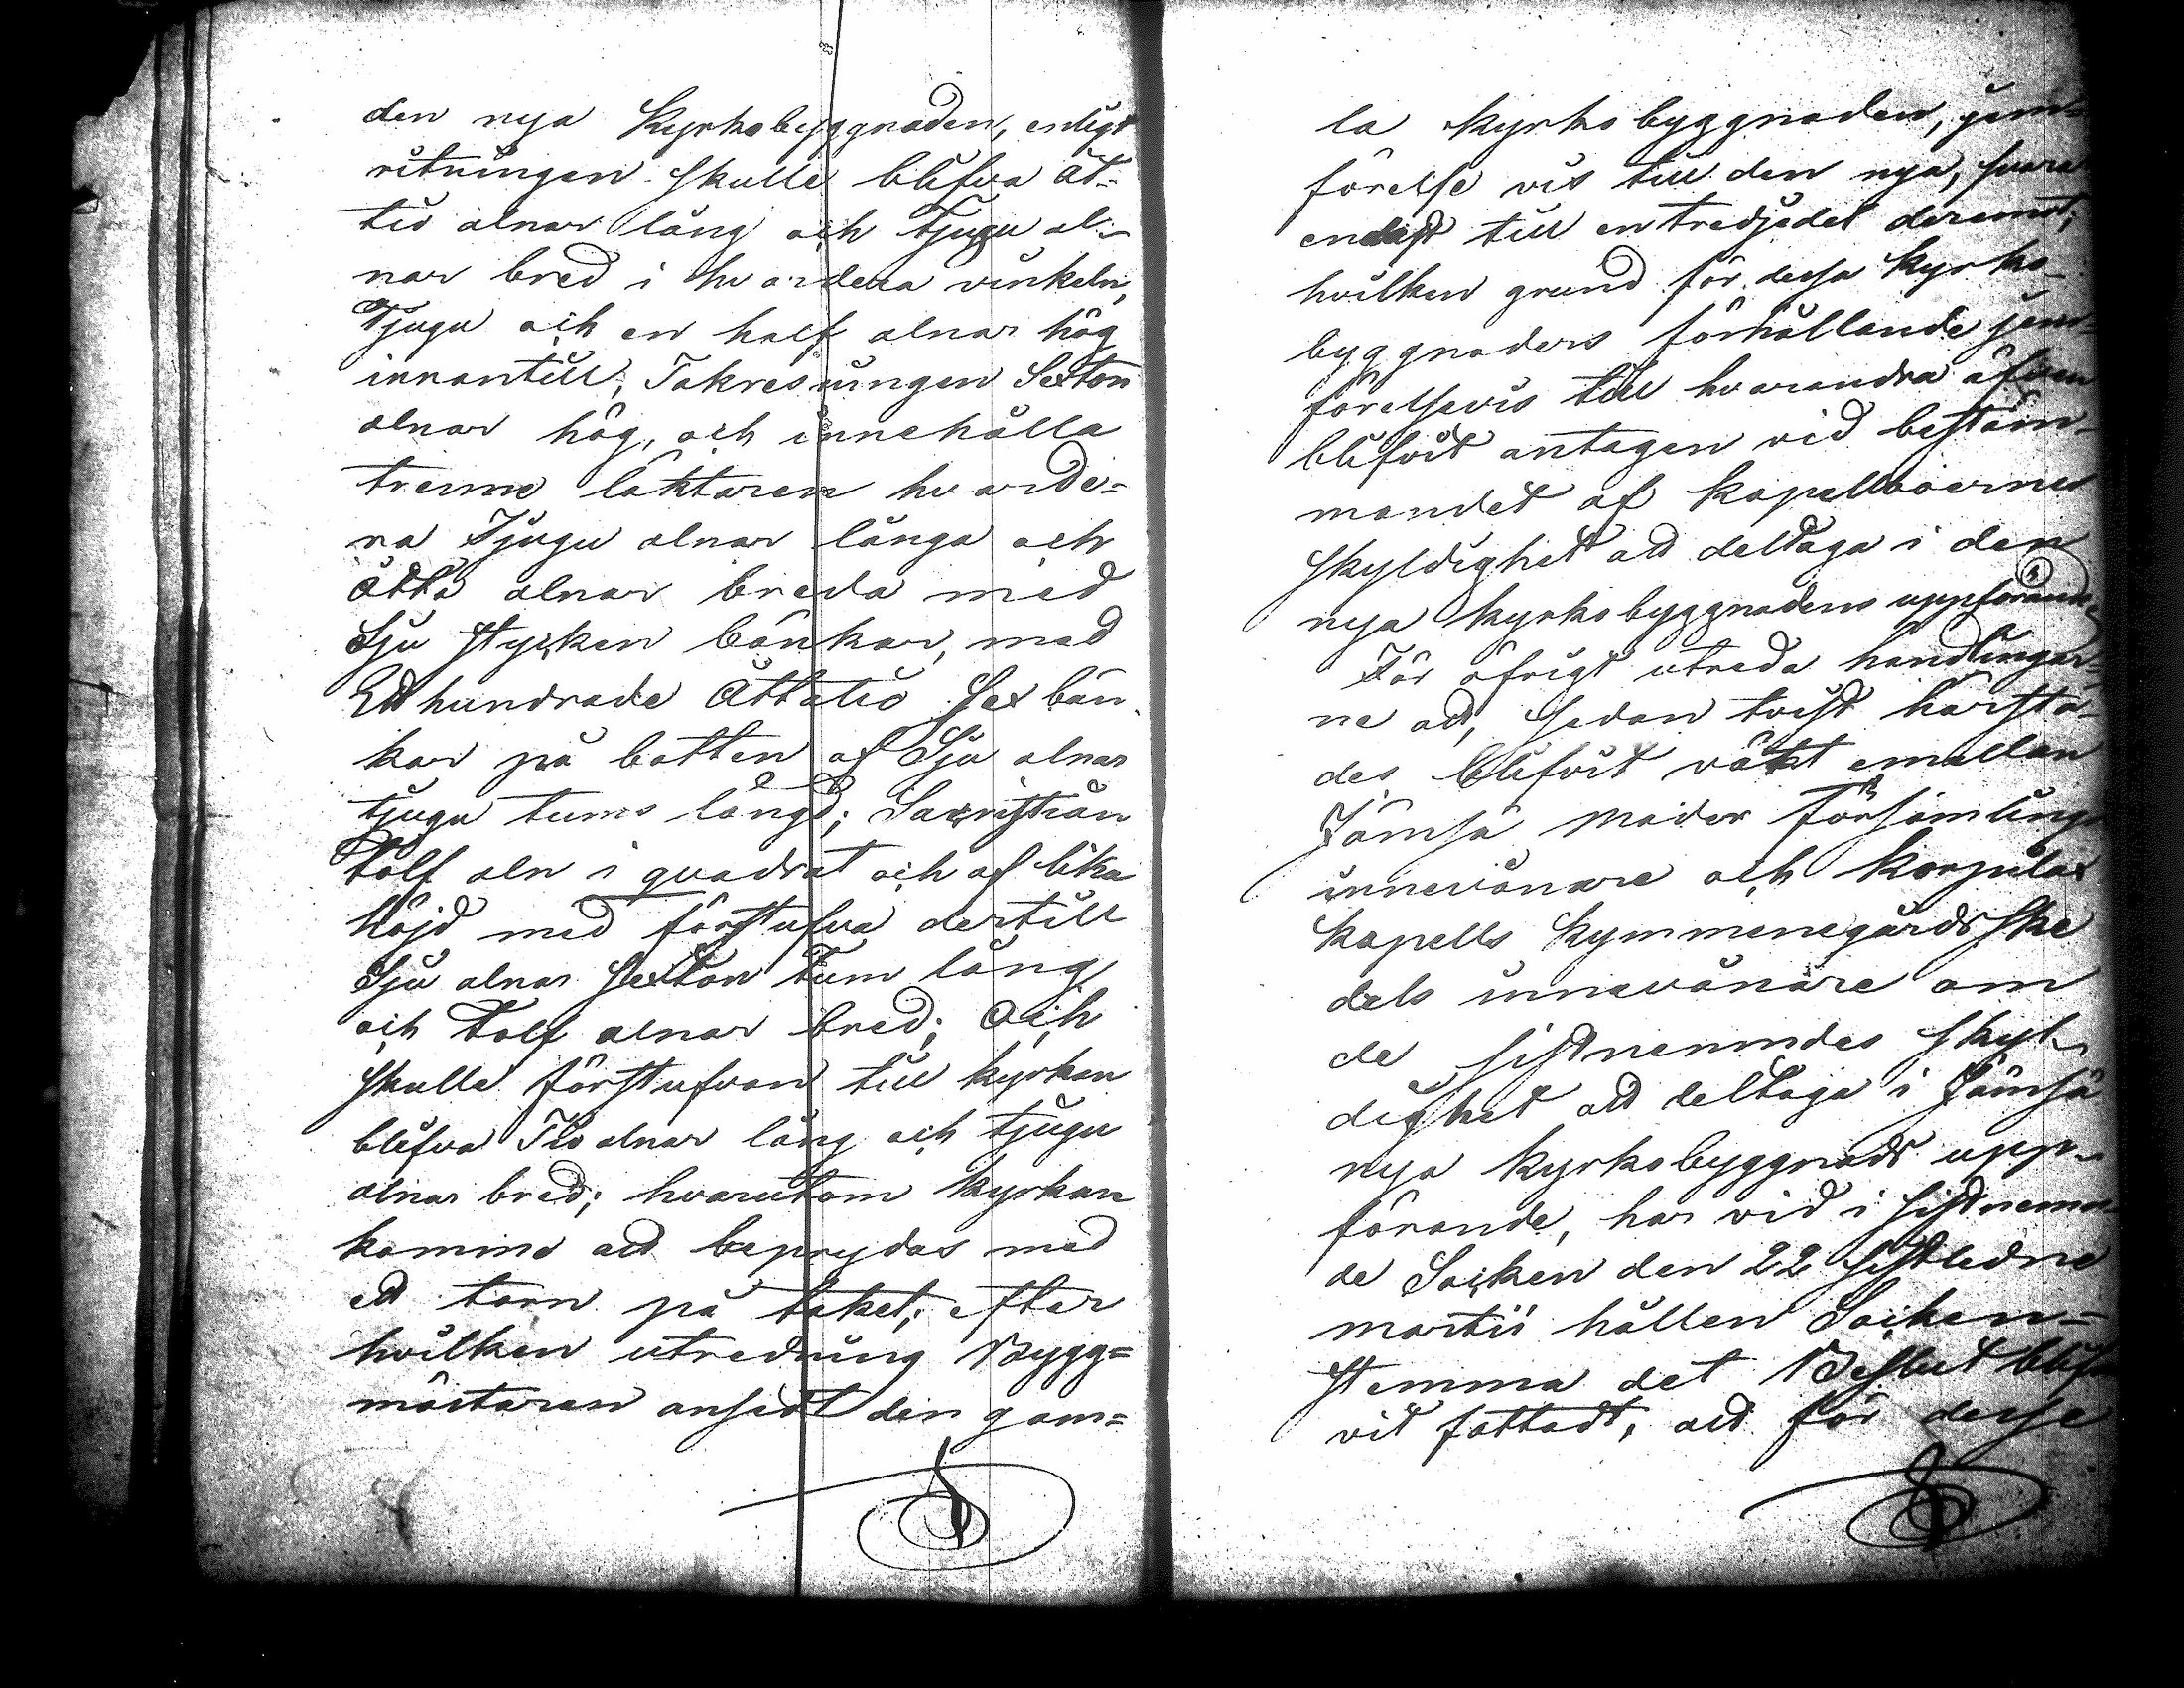 den nya Kyrkobyggnaden, enligt
ritningen skulle blifva åt-
tio alnar lång och Tjugu al-
nar bred i hvardera vinkeln,
Tjugu och en half alnar hög
innantill; Takresningen Sexton
alnar hög, och innehålla
trenne läktaren hvarde-
ra Tjugu alnar långa och
åtta alnar breda med
Sju stycken bänkar, med
Ett hundrade Åttatio sex bän-
kar på botten af Sju alnar
tjugu tums längd; Sacristian
Tolf aln i quadrat och af lika
höjd med förstufva dertill
Sju alnar sexton tum lång
och Tolf alnar bred; Och
skulle förstufvan till kyrkan
blifva Tio alnar lång och tjugu
alnar bred; hvarutom kyrkan
komme att beprydas med
ett torn på taket; efter
hvilken utredning Bygg=
mästaren ansett den gam=
la kyrko byggnaden, jem-
förelse vis till den nya, svara
endast till en tredjedel deremot;
hvilken grund för dessa kyrko-
byggnaders förhållande jem-
förelsevis till hvarandra äfven
blifvit antagen vid bestäm-
mandet af Kapellboernes
skyldighet att deltaga i den
nya kyrkobyggnadens uppförande
För öfrigt utreda handlingar-
ne att, sedan tvist härstä-
des blifvit väkt emellan
Jämsä Moder Församlings
innevånare och Korpilax
Kapells Kymmenegårds ske
dels innevånare om
de sistnemndes skyl-
dighet att deltaga i Jämsä
nya kyrkobyggnads upp-
förande, har vid i sistnemn-
de Socken den 22 sistledne
martii hållen Socken-
stemma det Beslut blif-
vit fattadt, att för desse